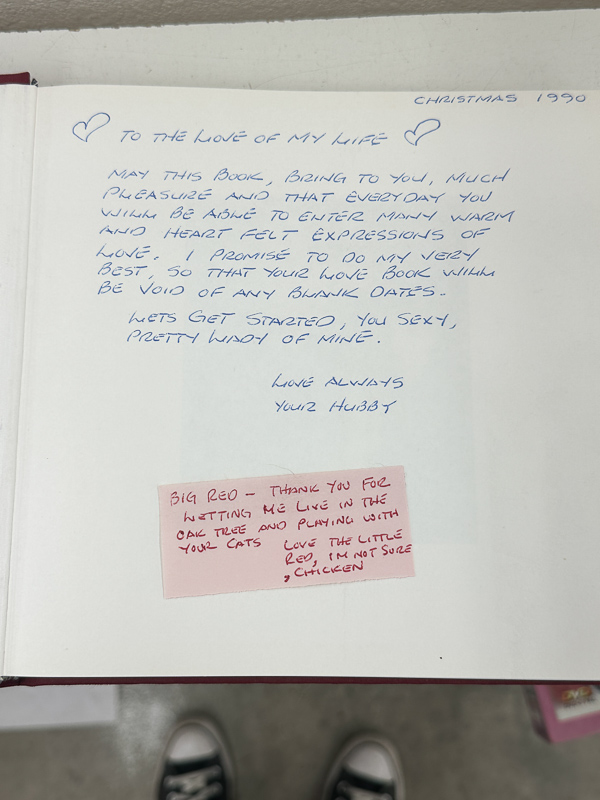 CHRISTMAS 1990
TO THE LOVE OF MY LIFE
MAY THIS BOOK, BRING TO YOU, MUCH
PLEASURE AND THAT EVERYDAY YOU
WILL BE ABLE TO ENTER MANY WARM
AND HEART FELT EXPRESSIONS OF
LOVE. I PROMISE TO DO MY VERY
BEST, SO THAT YOUR LOVE BOOK WILL
BE VOID OF ANY BLANK DATES.
LETS GET STARTED, YOU SEXY,
PRETTY LADY OF MINE.
LOVE ALWAYS
YOUR HUBBY
BIG RED - THANK YOU FOR
LETTING ME LIVE IN THE
OAK TREE AND PLAYING WITH
YOUR CATS LOVE THE LITTLE
RED, I'M NOT SURE
, CHICKEN